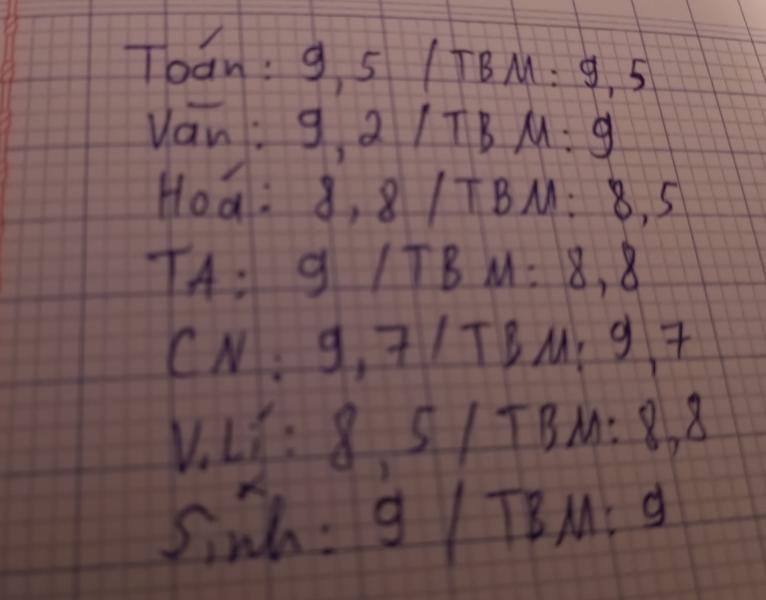 Toán: 9,5 / TBM: 9,5
Văn: 9,2 / TBM: 9
Hoá: 8,8 / TBM: 8,5
TA: 9 / TBM: 8,8
CN: 9,7 / TBM: 9,7
V.Lí: 8,5 / TBM: 8,8
Sinh: 9 / TBM: 9